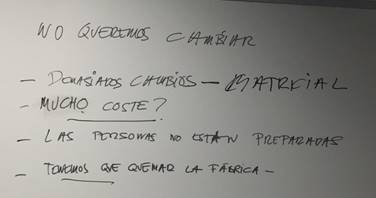 NO QUEREMOS CAMBIAR
- DEMASIADOS CAMBIOS - MATREIAL
- MUCHO COSTE?
- LAS PERSONAS NO ESTÁN PREPARADAS
- TENEMOS QUE QUEMAR LA FÁBRICA -